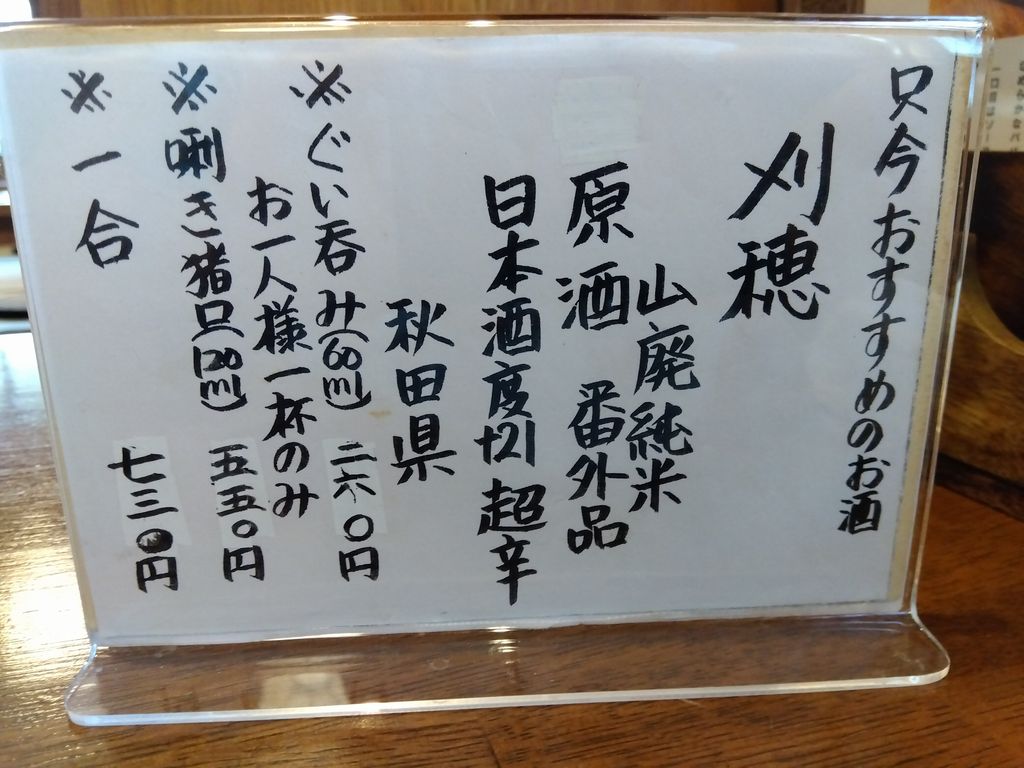 只今おすすめのお酒
刈穂
山廃純米
原酒 番外品
日本酒度+21 超辛
秋田県
※ぐい呑み(60ml) 二六〇円
お一人様一杯のみ
※唎き猪口(120ml) 五五〇円
※一合 七三〇円